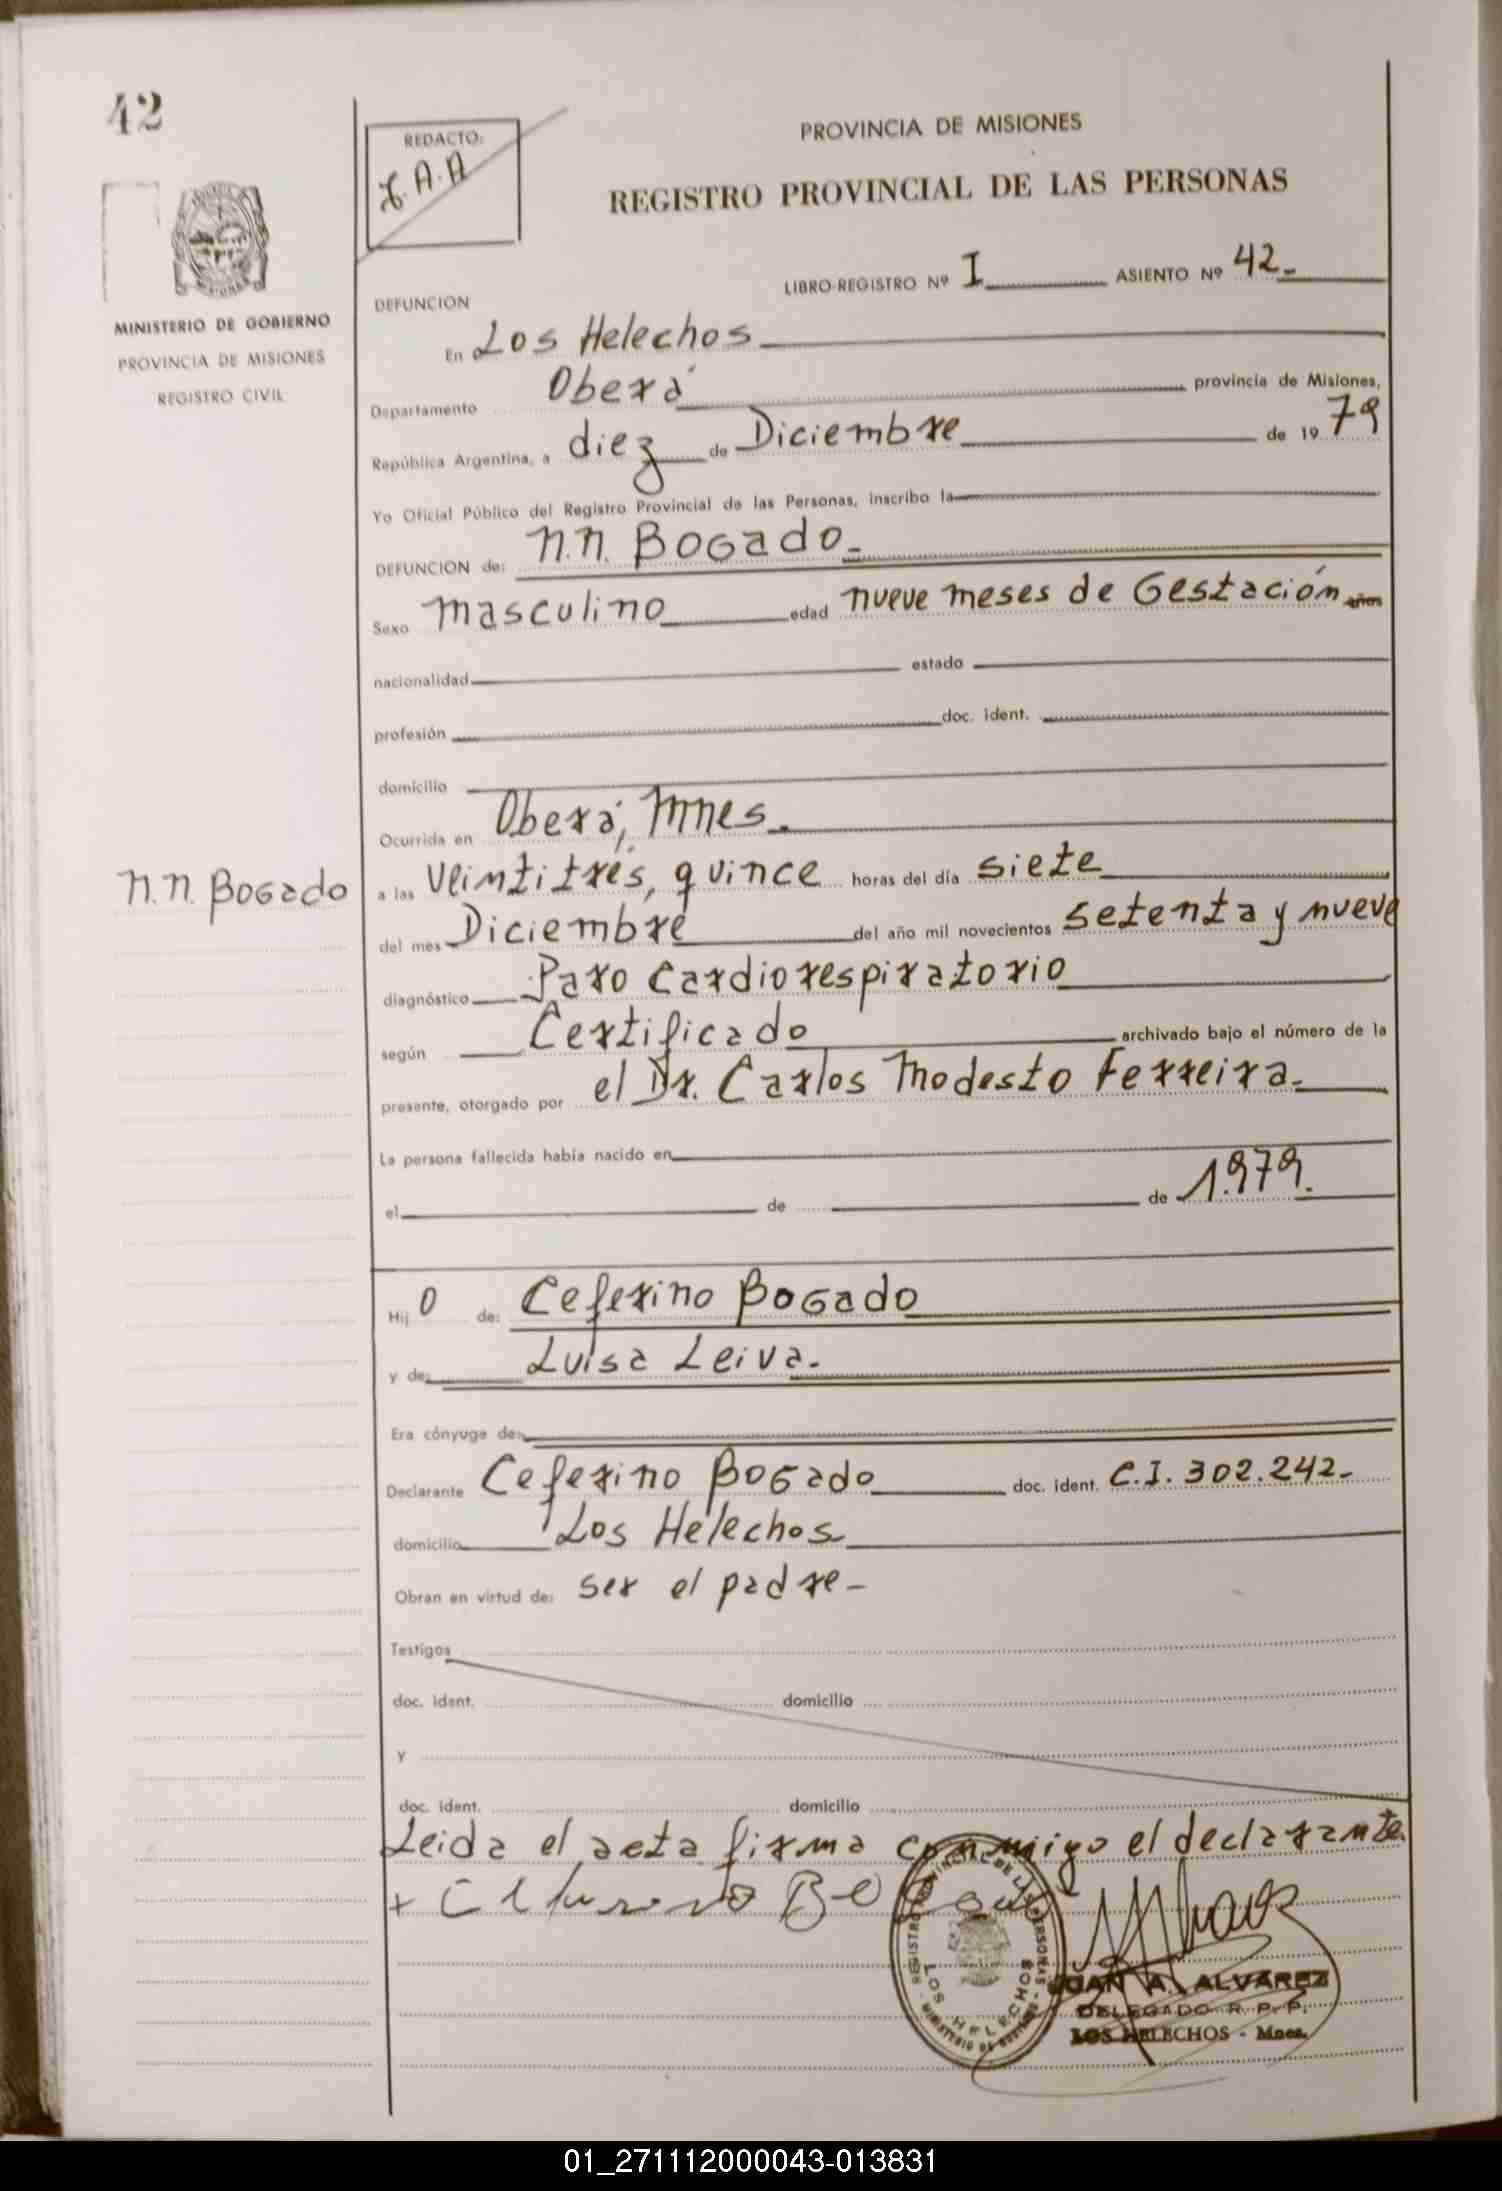 42
REDACTO:
J.A.A
PROVINCIA DE MISIONES
REGISTRO PROVINCIAL DE LAS PERSONAS
LIBRO-REGISTRO Nº I ASIENTO Nº 42.-
MINISTERIO DE GOBIERNO
PROVINCIA DE MISIONES
REGISTRO CIVIL
DEFUNCION
En Los Helechos
Departamento Oberá provincia de Misiones,
República Argentina, a diez de Diciembre de 1979
Yo Oficial Público del Registro Provincial de las Personas, inscribo la
DEFUNCION de: N.N. Bogado.-
Sexo masculino edad nueve meses de Gestación años
nacionalidad estado
profesión doc. ident.
domicilio
Ocurrida en Oberá, Mnes.
N.N. Bogado
a las veintitrés, quince horas del día siete
del mes Diciembre del año mil novecientos setenta y nueve
diagnóstico Paro Cardiorespiratorio
según Certificado archivado bajo el número de la
presente, otorgado por el Dr. Carlos Modesto Ferreira.-
La persona fallecida había nacido en
el de de 1.979.
Hij o de: Ceferino Bogado
y de: Luisa Leiva.-
Era cónyuge de:
Declarante Ceferino Bogado doc. ident. C.I. 302.242.-
domicilio Los Helechos
Obran en virtud de: ser el padre-
Testigos
doc. ident. domicilio
y
doc. ident. domicilio
Leida el acta firma conmigo el declarante.
REGISTRO PROVINCIAL DE LAS PERSONAS
LOS HELECHOS
JUAN A. ALVAREZ
DELEGADO R. P. P.
LOS HELECHOS - Mnes.
01_271112000043-013831